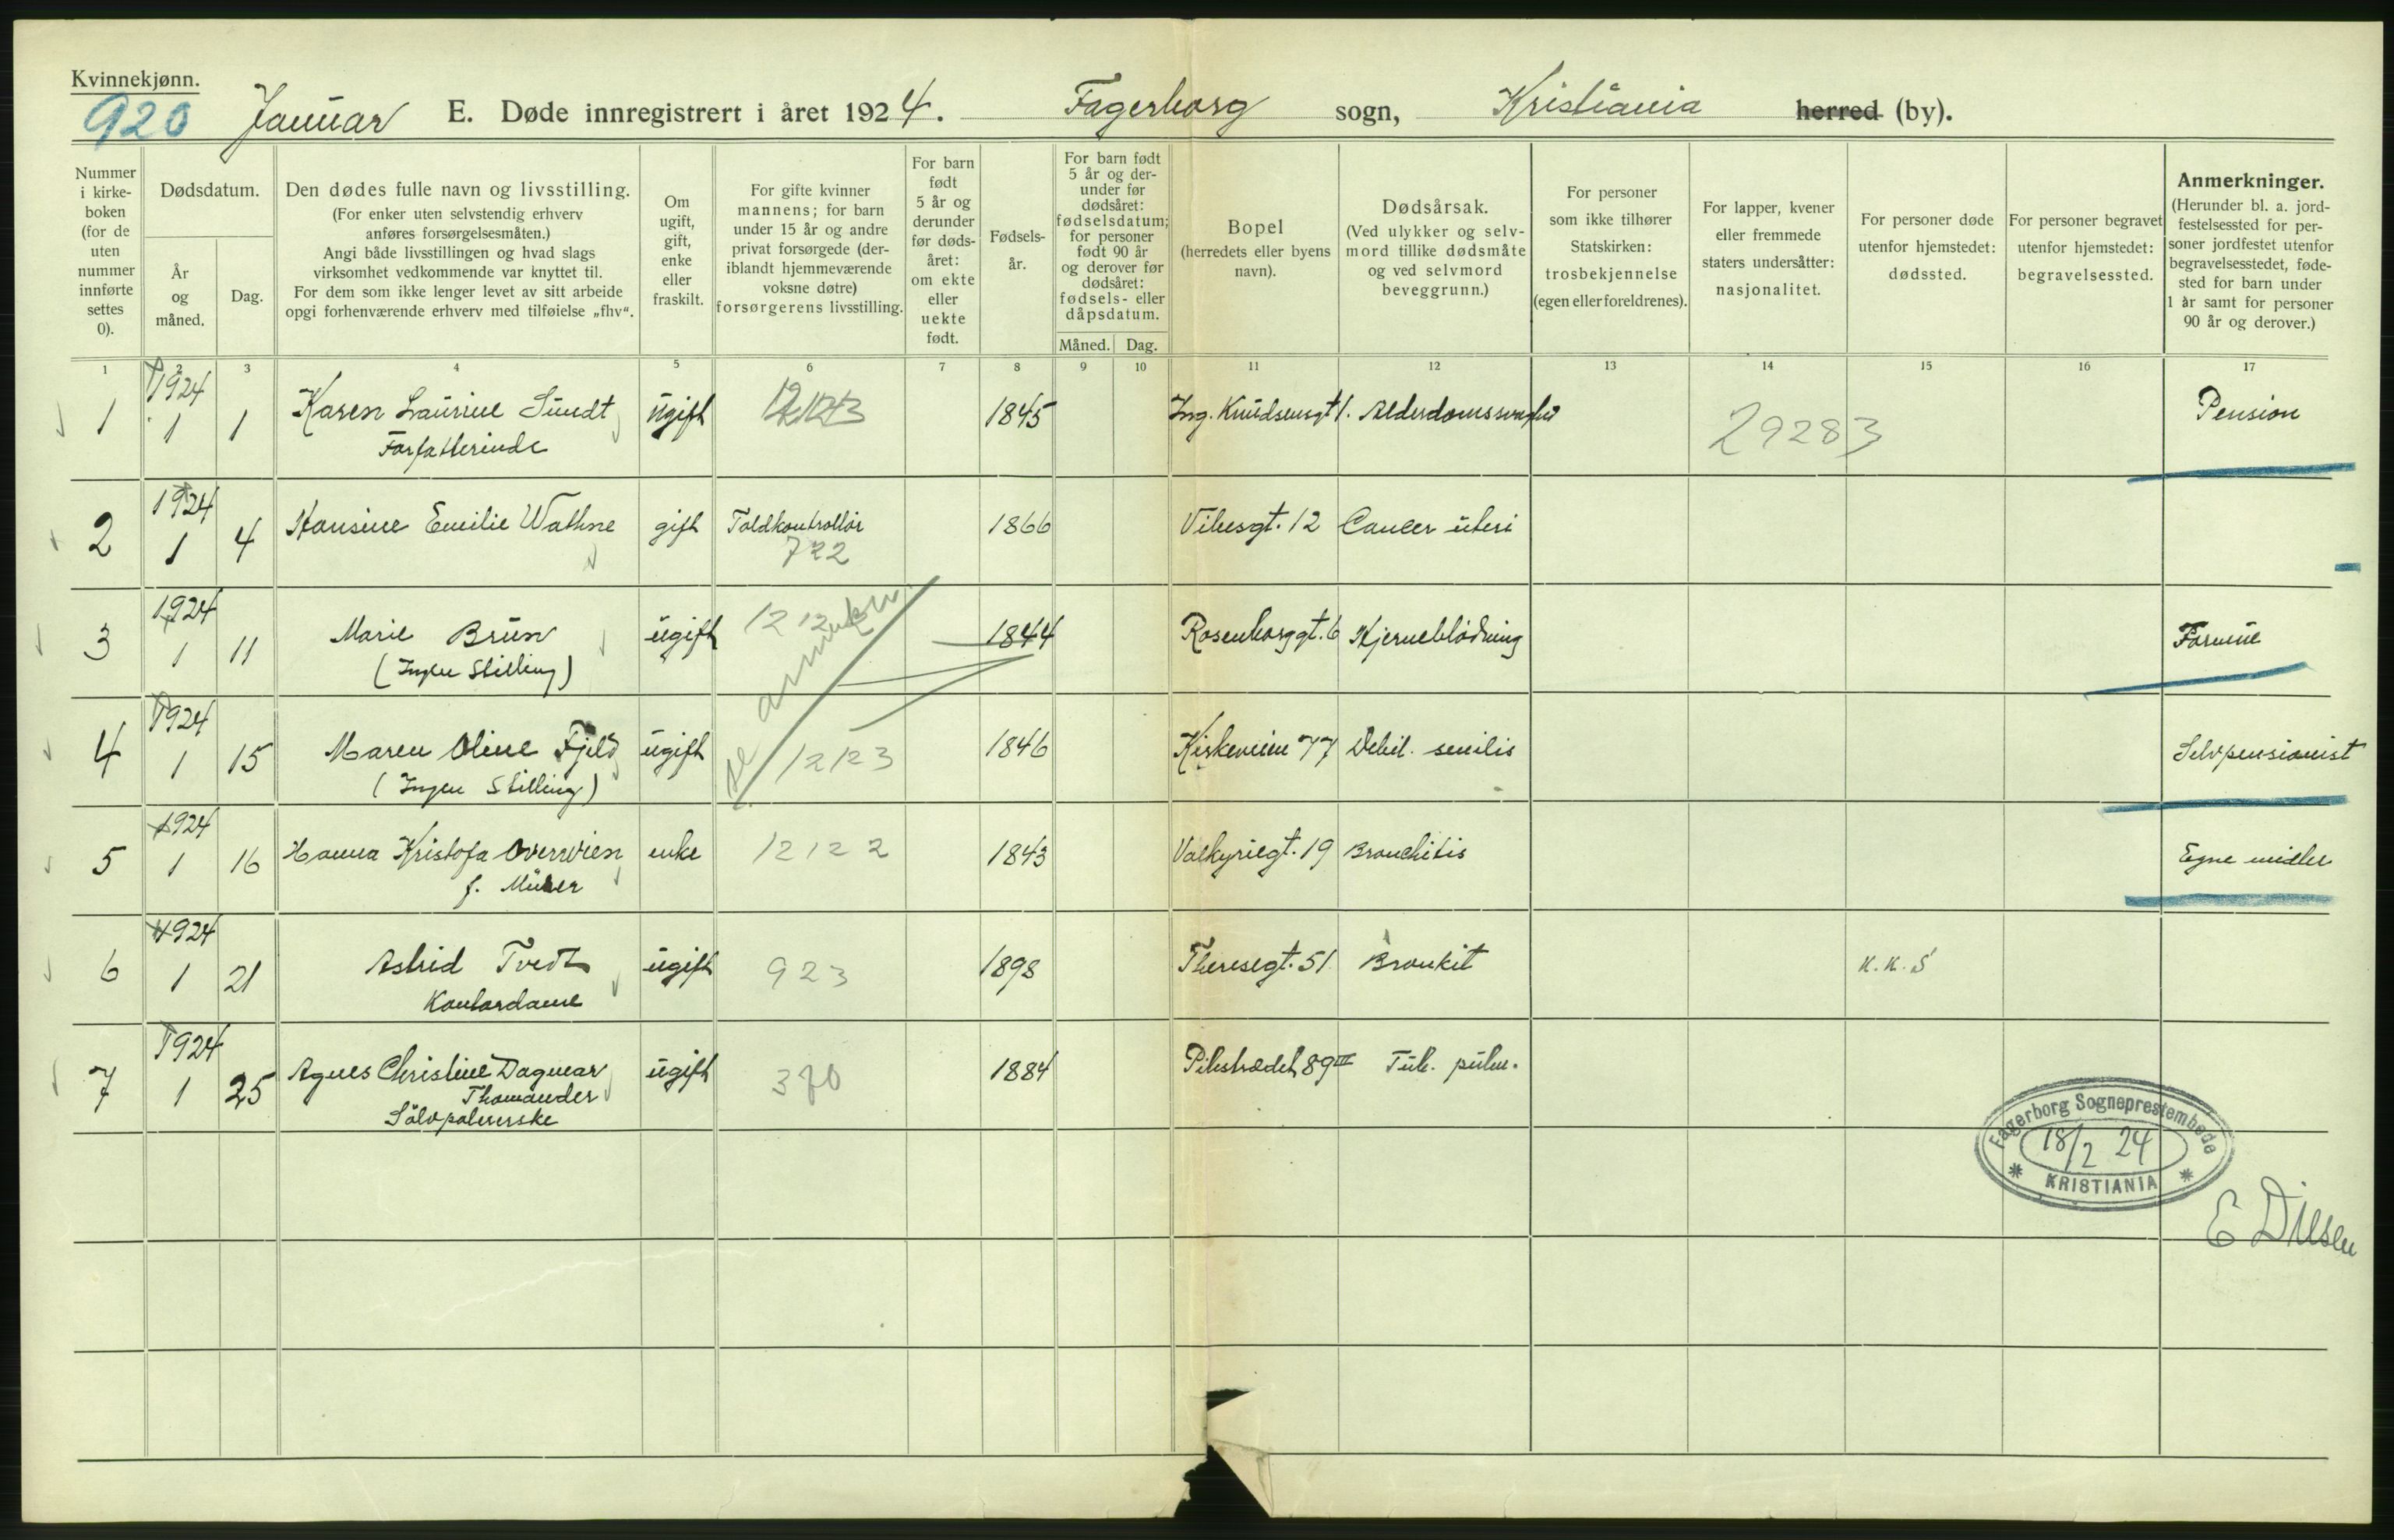 Kvinnekjønn.
920 Januar E. Døde innregistrert i året 1924. Fagerborg sogn, Kristiania herred (by).
Nummer i kirke-boken (for de uten nummer innførte settes 0).
Dødsdatum.
År og måned.
Dag.
Den dødes fulle navn og livsstilling.
(For enker uten selvstendig erhverv
anføres forsørgelsesmåten.)
Angi både livsstillingen og hvad slags
virksomhet vedkommende var knyttet til.
For dem som ikke lenger levet av sitt arbeide
opgi forhenværende erhverv med tilføielse „fhv“.
Om ugift, gift, enke eller fraskilt.
For gifte kvinner
mannens; for barn
under 15 år og andre
privat forsørgede (der-
iblandt hjemmeværende
voksne døtre)
forsørgerens livsstilling.
For barn
født
5 år og
derunder
før døds-
året:
om ekte
eller
uekte
født.
Fødsels-
år.
For barn født
5 år og der-
under før
dødsåret:
fødselsdatum;
for personer
født 90 år
og derover før
dødsåret:
fødsels- eller
dåpsdatum.
Måned. Dag.
Bopel
(herredets eller byens
navn).
Dødsårsak.
(Ved ulykker og selv-
mord tillike dødsmåte
og ved selvmord
beveggrunn.)
For personer
som ikke tilhører
Statskirken:
trosbekjennelse
(egen eller foreldrenes).
For lapper, kvener
eller fremmede
staters undersåtter:
nasjonalitet.
For personer døde
utenfor hjemstedet:
dødssted.
For personer begravet
utenfor hjemstedet:
begravelsessted.
Anmerkninger.
(Herunder bl. a. jord-
festelsessted for per-
soner jordfestet utenfor
begravelsesstedet, føde-
sted for barn under
1 år samt for personer
90 år og derover.)
1 2 3 4 5 6 7 8 9 10 11 12 13 14 15 16 17
1924
1 1 1 Karen Laurine Sundt ugift 1845 Ing. Knudsensgt 1. Alderdomssvaghed 29283 Pension
Forfatterinde
1924
2 1 4 Hansine Emilie Wathne gift Toldkontrollør 1866 Vibesgt. 12 Cancer uteri
722
1924
3 1 11 Marie Brun ugift 1212 1844 Rosenborggt. 6 Hjerneblødning Formue
(Ingen Stilling)
1924
4 1 15 Maren Oline Fjeld ugift 12123 1846 Kirkeveien 77 Debil. senilis Selvpensionist
(Ingen Stilling)
1924
5 1 16 Hanna Kristofa Overwien enke 12122 1843 Valkyriegt. 19 Bronchitis Egne midler
f. Müller
1924
6 1 21 Astrid Tvedt ugift 923 1898 Theresegt. 51 Bronkit K.K.S
Kontordame
1924
7 1 25 Agnes Christine Dagmar ugift 370 1884 Pilestrædet 89 III Tub. pulm.
Thomander
Sölvpolererske
Fagerborg Sogneprestembede
18/2 24
KRISTIANIA
E Diesen